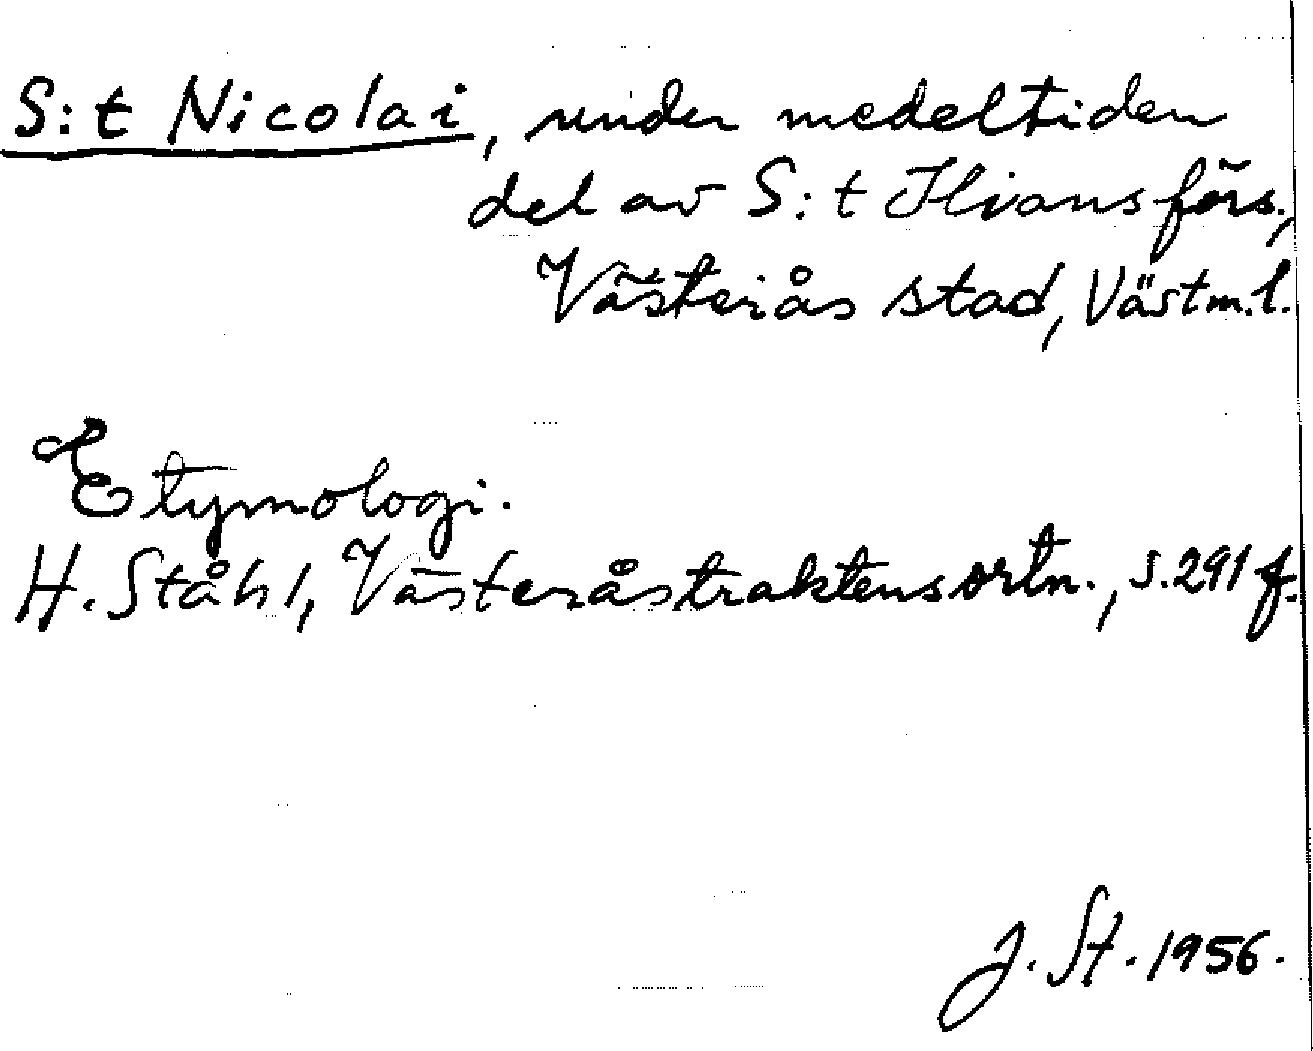 S:t Nicolai, under medeltiden
del av S:t Ilians förs.,
Västerås stad, Västm.l.
Etymologi.
H. Ståhl, Västeråstraktens ortn., s. 291 f.
J. St. 1956.